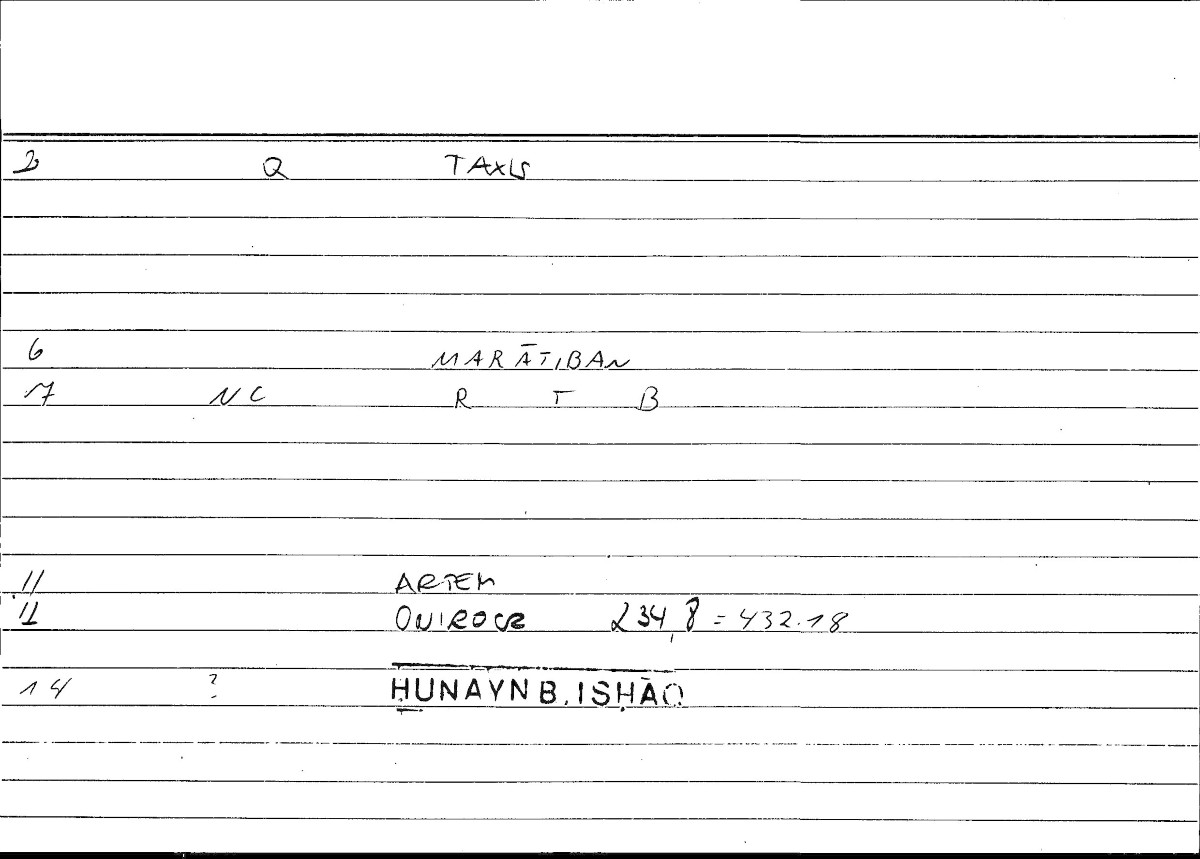 2 Q TAXIS
6 MARĀTIBAN
7 NC R T B
11 ARTEM
12 ONIROCR 234,8 = 432.18
14 ? ḤUNAYN B. ISḤĀQ